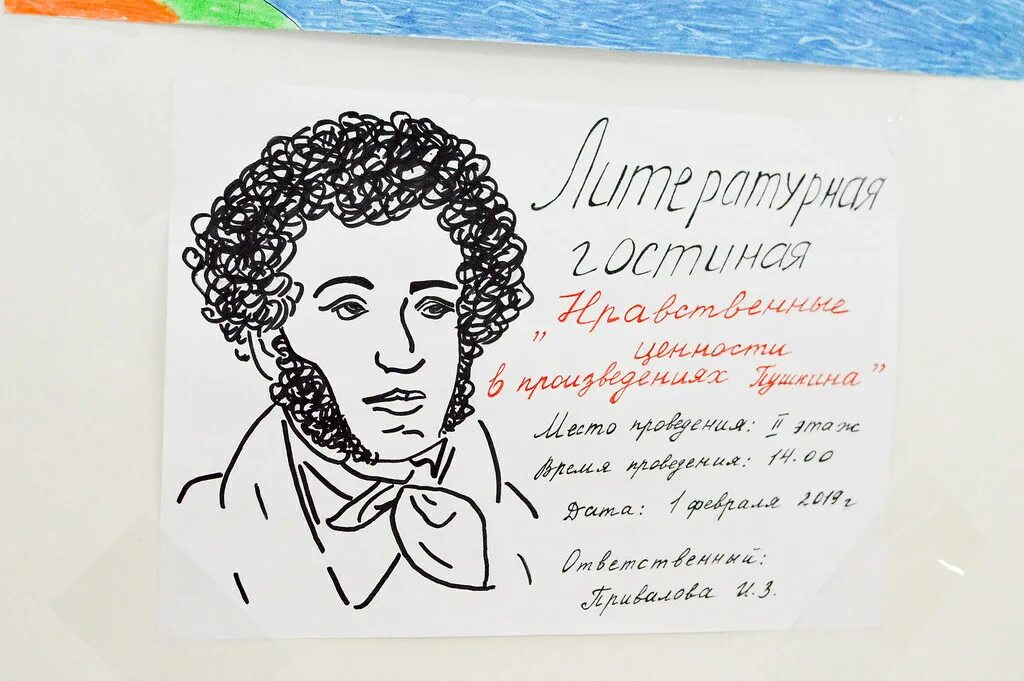 Литературная
гостиная
"Нравственные
ценности
в произведениях Пушкина"
Место проведения: II этаж
Время проведения: 14.00
Дата: 1 февраля 2019г
Ответственный:
Привалова И.З.